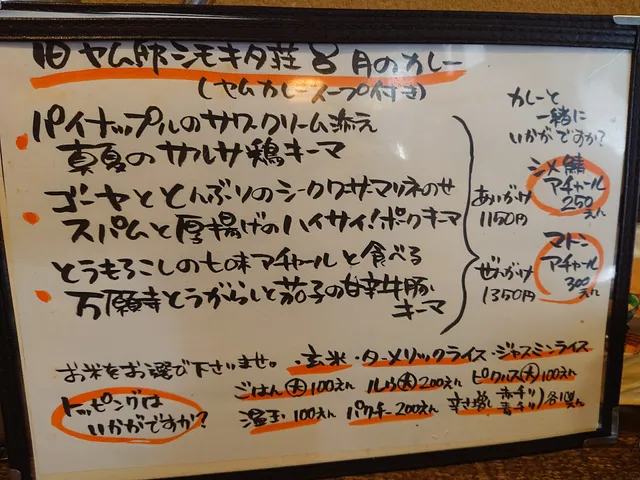 旧ヤム邸シモキタ荘 8月のカレー
(ヤムカレースープ付き)
パイナップルのサワークリーム添え
真夏のサルサ鶏キーマ
ゴーヤととんぶりのシークワーサーマリネのせ
スパムと厚揚げのハイサイ!ポークキーマ
とうもろこしの七味アチャールと食べる
万願寺とうがらしと茄子の甘辛牛豚キーマ
あいがけ
1150円
ぜんがけ
1350円
カレーと
一緒に
いかがですか?
シメ鯖
アチャール
250えん
マトン
アチャール
300えん
お米をお選び下さいませ。・玄米・ターメリックライス・ジャスミンライス
トッピングは
いかがですか?
ごはん大100えん ルウ大200えん ピクルス大100えん
温玉100えん パクチー200えん 辛さ増し 赤チリ 青チリ